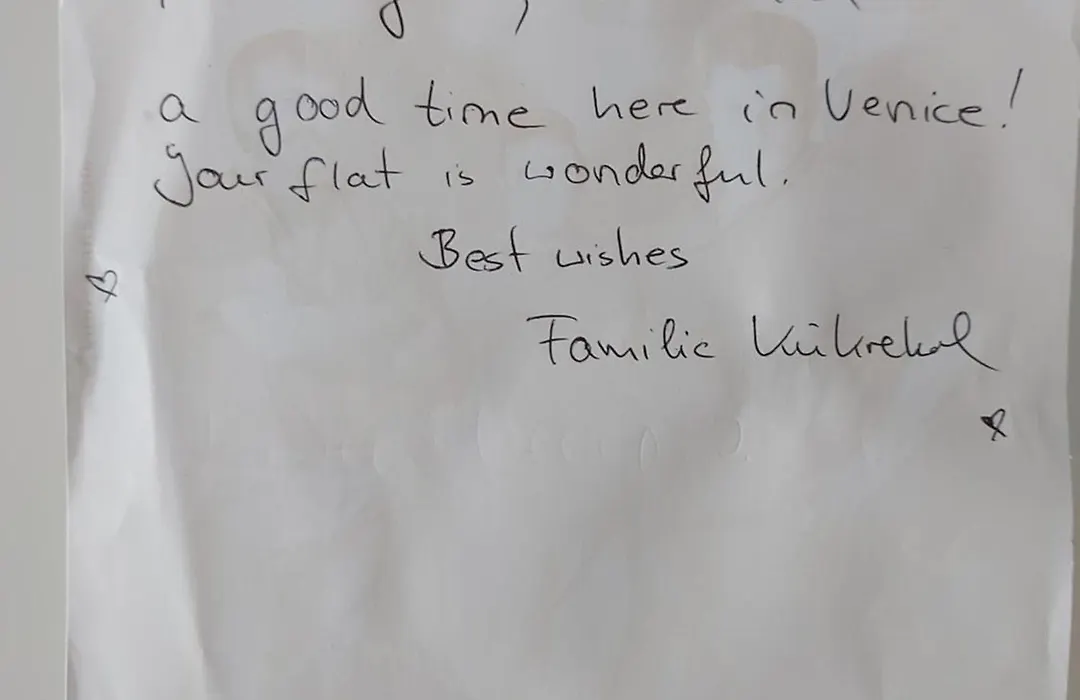 a good time here in Venice!
Your flat is wonderful.
Best wishes
Familie